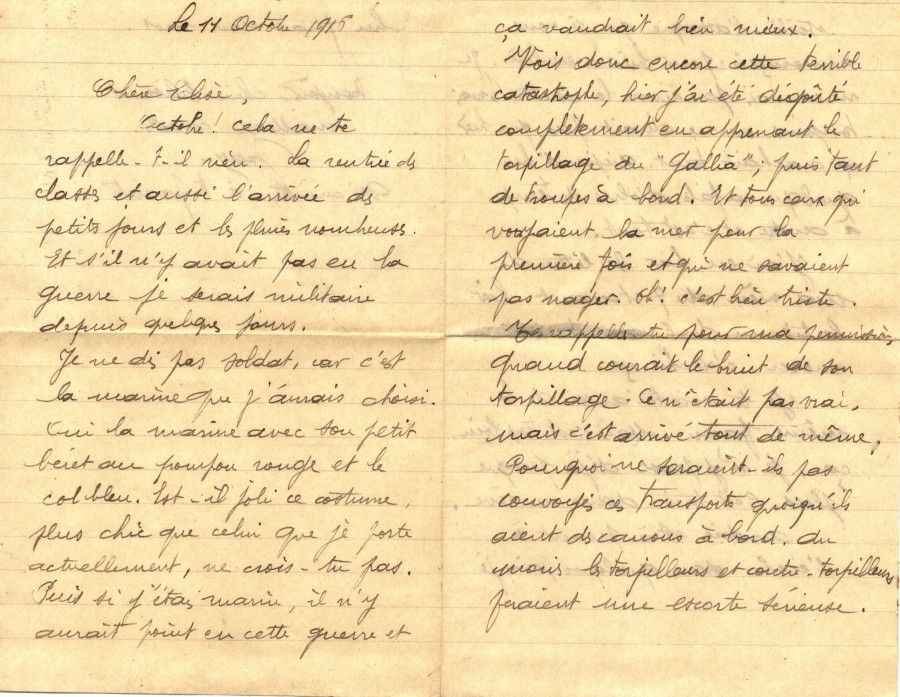 Le 11 Octobre 1916
Chère Elise,
Octobre! cela ne te
rappelle-t-il rien. La rentrée des
classes et aussi l'arrivée des
petits jours et les pluies nombreuses.
Et s'il n'y avait pas eu la
guerre je serais militaire
depuis quelques jours.
Je ne dis pas soldat, car c'est
la marine que j'aurais choisi.
Oui la marine avec son petit
béret au pompon rouge et le
col bleu. Est-il joli ce costume,
plus chic que celui que je porte
actuellement, ne crois-tu pas.
Puis si j'étais marin, il n'y
aurait point eu cette guerre et
ça vaudrait bien mieux.
Vois donc encore cette terrible
catastrophe, hier j'ai été dégoûté
complètement en apprenant le
torpillage du "Gallia"; puis tant
de troupes à bord. Et tous ceux qui
voyaient la mer pour la
première fois et qui ne savaient
pas nager. Oh! c'est bien triste.
Te rappelles-tu pour ma permission,
quand courait le bruit de son
torpillage. Ce n'était pas vrai,
mais c'est arrivé tout de même.
Pourquoi ne seraient-ils pas
convoyés ces transports quoiqu'ils
aient des canons à bord. Au
moins les torpilleurs et contre-torpilleurs
feraient une escorte sérieuse.